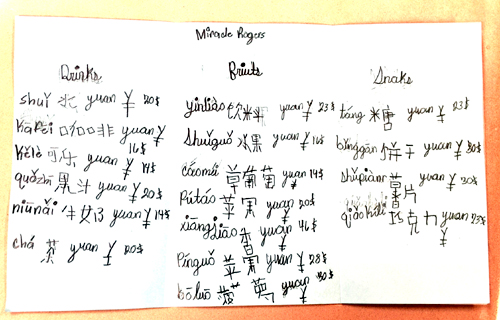 Miracle Rogers
Drinks
shuǐ 水 yuan ¥ 20$
kāfēi 咖啡 yuan ¥
16$
kělè 可乐 yuan ¥ 14$
guǒzhī 果汁 yuan ¥ 20$
niúnǎi 牛奶 yuan ¥ 14$
chá 茶 yuan ¥ 20$
Fruits
yǐnliào 饮料 yuan ¥ 23$
Shuǐguǒ 水果 yuan ¥ 16$
cǎoméi 草葡萄 yuan 14$
Pútáo 苹果 yuan ¥ 20$
xiāngjiāo 香 yuan ¥ 46$
Píngguǒ 苹果 yuan ¥ 28$
bōluó yuan ¥ 30$
Snaks
táng 糖 yuan ¥ 23$
bǐnggān 饼干 yuan ¥ 30$
shǔpiàn 片 yuan ¥ 30$
qiǎokèlì 巧克力 yuan 23$
¥